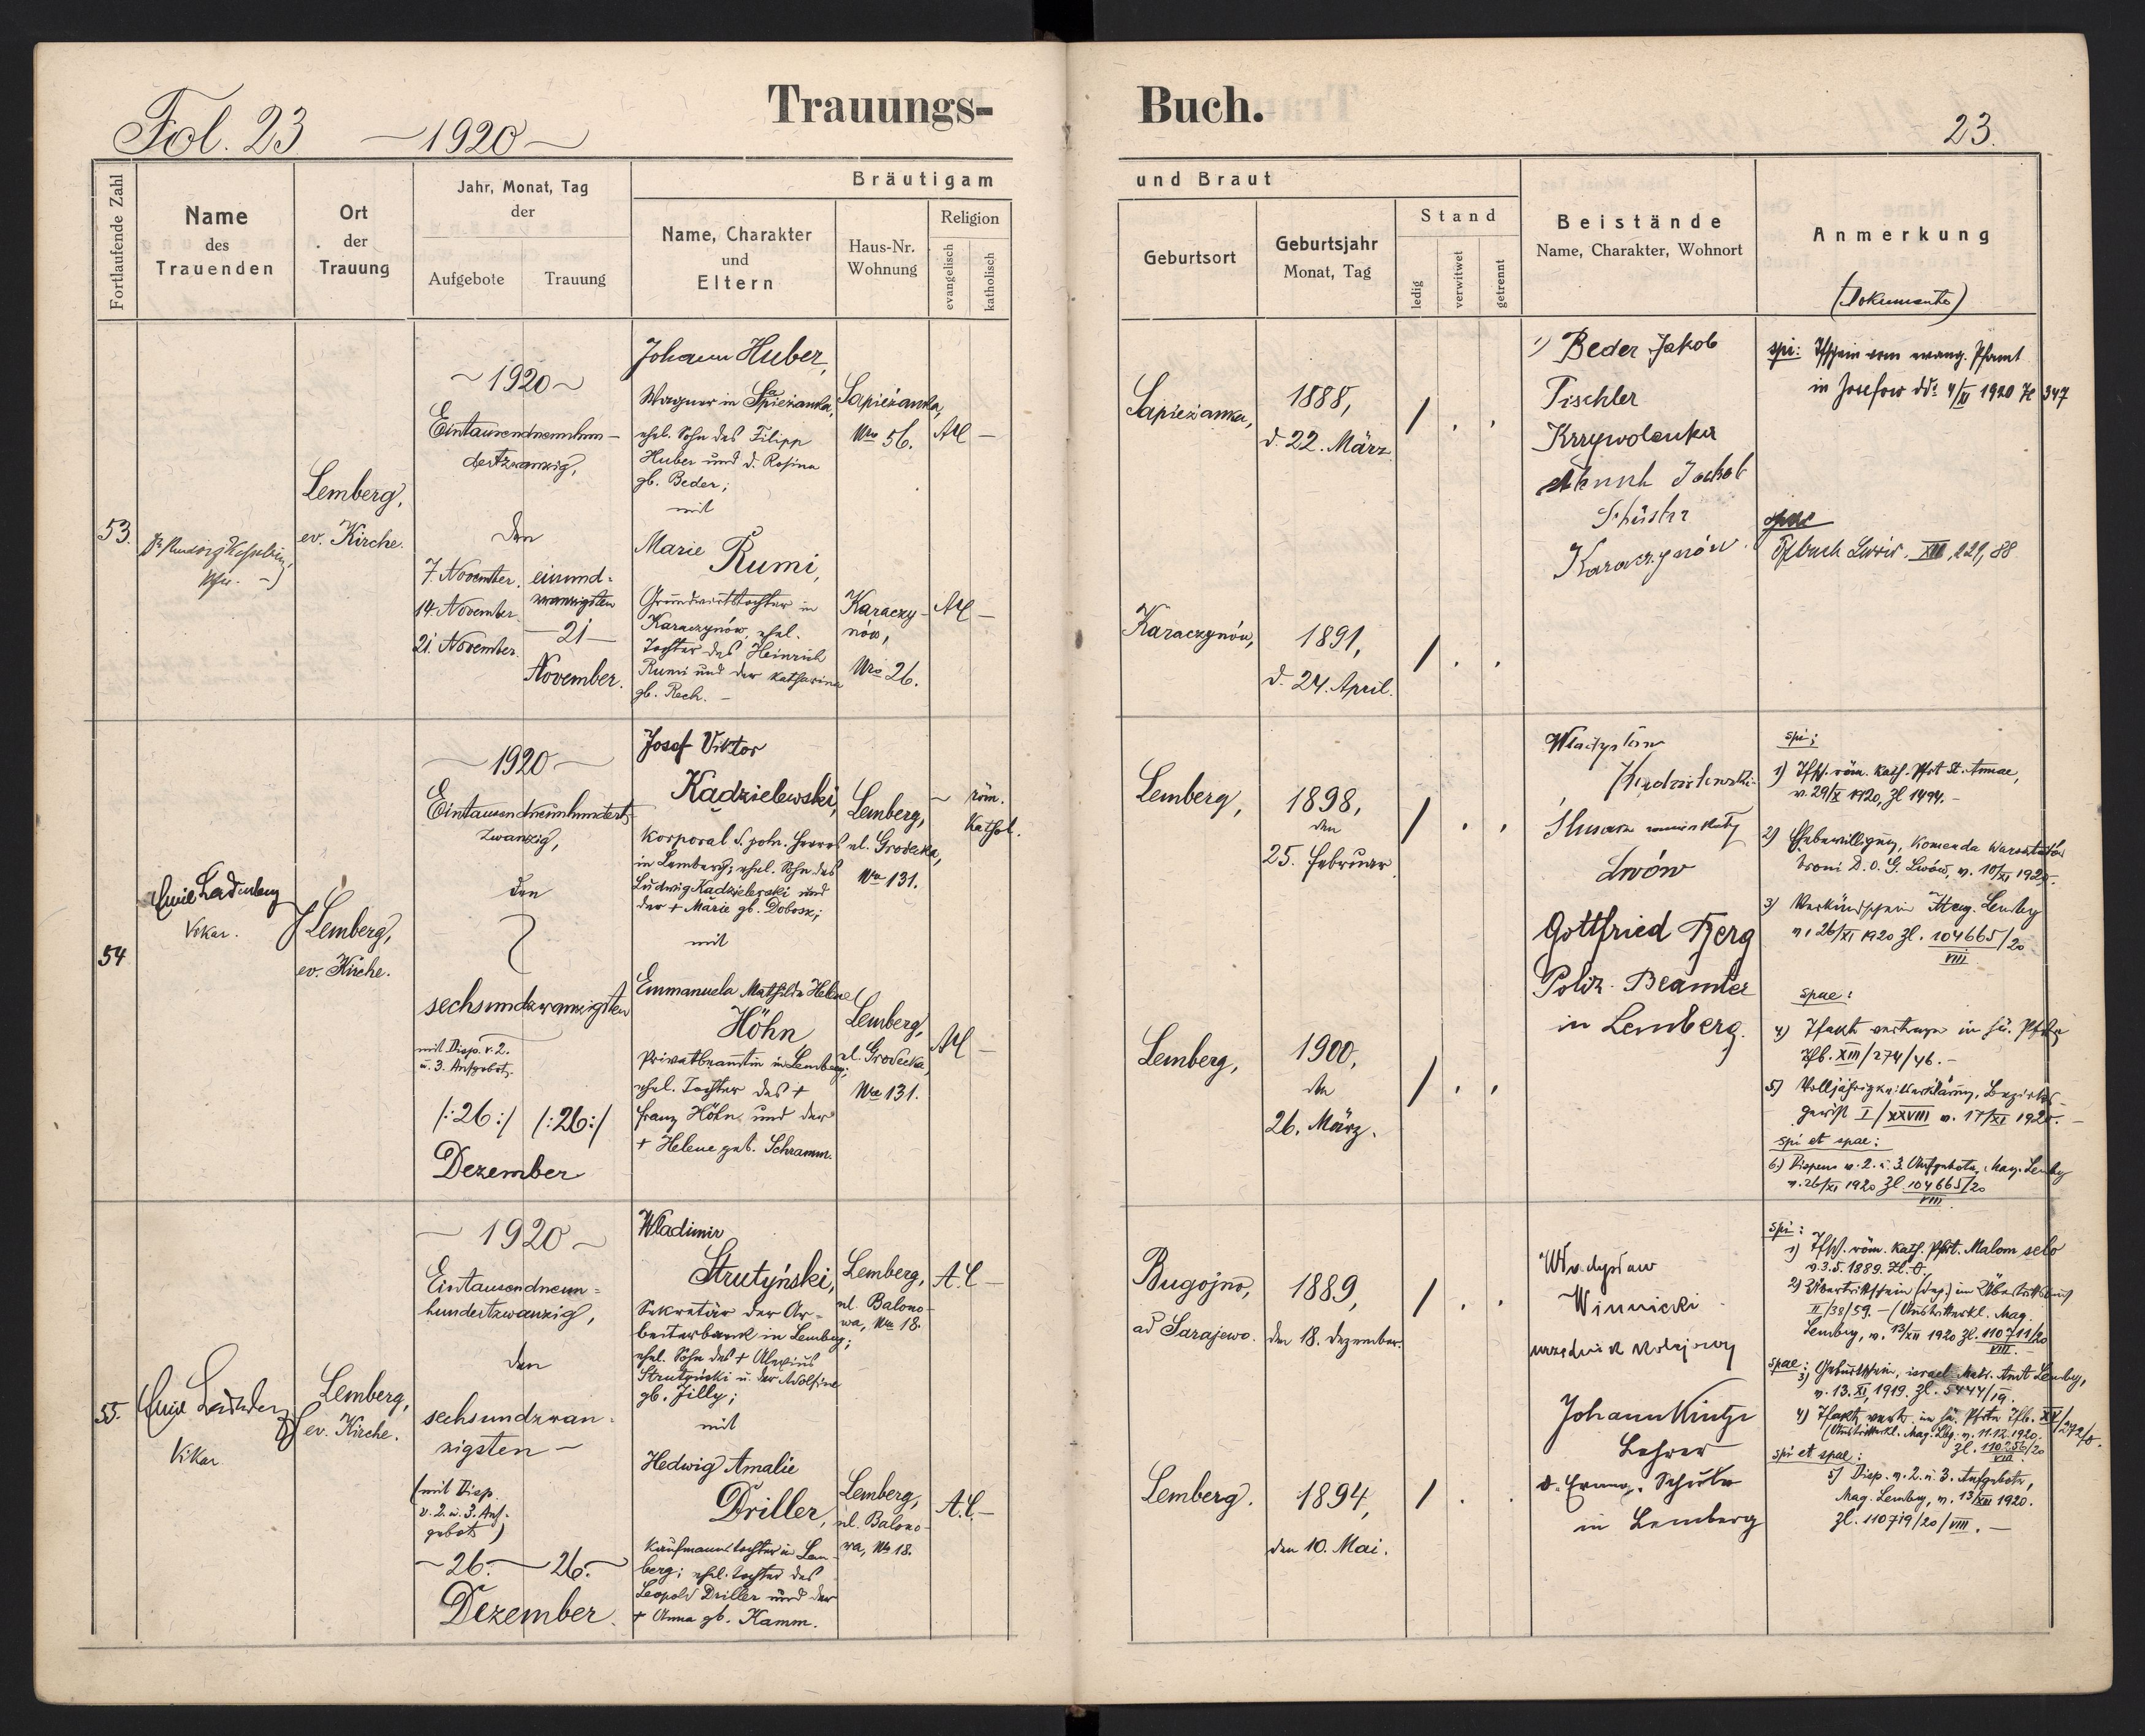 Fol. 23 — 1920 —
Trauungs-
Buch.
23.
Fortlaufende Zahl
Name
des
Trauenden
Ort
der
Trauung
Jahr, Monat, Tag
der
Aufgebote
Trauung
Bräutigam
Name, Charakter
und
Eltern
Haus-Nr.
Wohnung
Religion
evangelisch
katholisch
und Braut
Geburtsort
Geburtsjahr
Monat, Tag
Stand
ledig
verwitwet
getrennt
Beistände
Name, Charakter, Wohnort
Anmerkung
(Dokumente)
53.
Lemberg,
ev. Kirche.
~ 1920 ~
Eintausendneunhun-
dertzwanzig,
den
7. November.
14. November.
21. November.
einund-
zwanzigsten
— 21 —
November.
Johann Huber,
Wagner in Sapieżanka,
ehel. Sohn des Filipp
Huber und d. Rosina
gb. Beder;
mit
Marie Rumi,
Grundwirtstochter in
Karaczynów, ehel.
Tochter des Heinrich
Rumi und der Katharina
gb. Rech. —
Sapieżanka,
Nro 56.
Karaczy-
nów,
Nro 26.
Sapieżanka,
1888,
d. 22. März.
Karaczynów,
1891,
d. 24. April.
1) Beder Jakob
Tischler
Jakob
Karaczynów.
spi: Tfschein vom evang. Pfarramt
in Josefow dd: 4/II 1920 Zl 347
spae
Tfbuch Lwów. XIII, 229, 88
54
Emil Ladenberg
Vikar.
Lemberg,
ev. Kirche.
— 1920 —
Eintausendneunhundert-
zwanzig,
den
sechsundzwanzigsten
mit Disp. v. 2.
u. 3. Aufgebot.
/:26:/ /:26:/
Dezember
Josef Viktor
Kadzielewski,
Korporal d. poln. Heeres
in Lemberg; ehel. Sohn des
Ludwig Kadzielewski und
der + Marie gb. Dobosz;
mit
Emmanuela Mathilde Helene
Höhn
Privatbeamtin in Lemberg;
ehel. Tochter des +
Franz Höhn und der
+ Helene geb. Schramm.
Lemberg,
ul. Grodecka,
Nro 131.
Lemberg,
ul. Grodecka,
Nro 131.
röm.
Kathol.
Lemberg,
1898,
den
25. Februar.
Lemberg,
1900,
den
26. März.
Władysław
Lwów
Gottfried Berg
Poliz. Beamter
in Lemberg.
spi:
1) Tfsch. röm. kath. Pfrt St. Annae,
v. 29/X 1920, Zl 1494. —
2) Ehebewilligung, Komenda
broni D.O.G. Lwów, v. 10/XI 1920.
3) Verkündschein Mag. Lemberg
v. 26/XI 1920 Zl. 104665/20
VIII
spae:
5) Volljährigkeitserklärung, Bezirks-
gericht I/XXVIII v. 17/XI 1920. —
spi et spae:
6) Dispens v. 2. u. 3. Aufgebote, Mag. Lemberg
v. 26/XI 1920 Zl 104665/20
VIII
55.
Vikar
Lemberg,
ev. Kirche.
— 1920 —
Eintausendneun-
hundertzwanzig,
den
sechsundzwan-
zigsten —
(mit Disp.
v. 2. u. 3. Auf-
gebots)
— 26. — 26. —
Dezember.
Wladimir
Strutyński,
Sekretär der Ar-
beiterbank in Lemberg;
ehel. Sohn des + Alexius
Strutyński u. der Adolfine
gb. Jilly;
mit
Hedwig Amalie
Driller,
Kaufmannstochter in Lem-
berg; ehel. Tochter des
Leopold Driller und der
+ Anna gb. Kamm.
Lemberg,
ul. Balono-
wa, Nro 18.
Lemberg,
ul. Balono-
wa, Nro 18.
A.C. —
A.C. —
Bugojno,
ad Sarajewo.
1889,
den 18. Dezember.
Lemberg.
1894,
den 10. Mai.
Winnicki
urzędnik kolejowy
Johann Kintzi
Lehrer
d. evang. Schule
in Lemberg
spi:
1) Tfsch. röm. kath. Pfrt. Malom selo
v. 3.5.1889. Zl. 0.
II/38/59. — (Austritterkl. Mag.
Lemberg, v. 13/XII 1920 Zl. 110711/20
VIII
spae:
3) Geburtschein, israel. Matr. Amt Lemberg,
v. 13. XI 1919. Zl. 5444/19.
(Austritterkl. Mag. Lbg. v. 11.12.1920.
Zl. 110256/20
VIII
spi et spae:
5) Disp. v. 2. u. 3. Aufgebote,
Mag. Lemberg, v. 13/XII 1920.
Zl. 110719/20/VIII. —